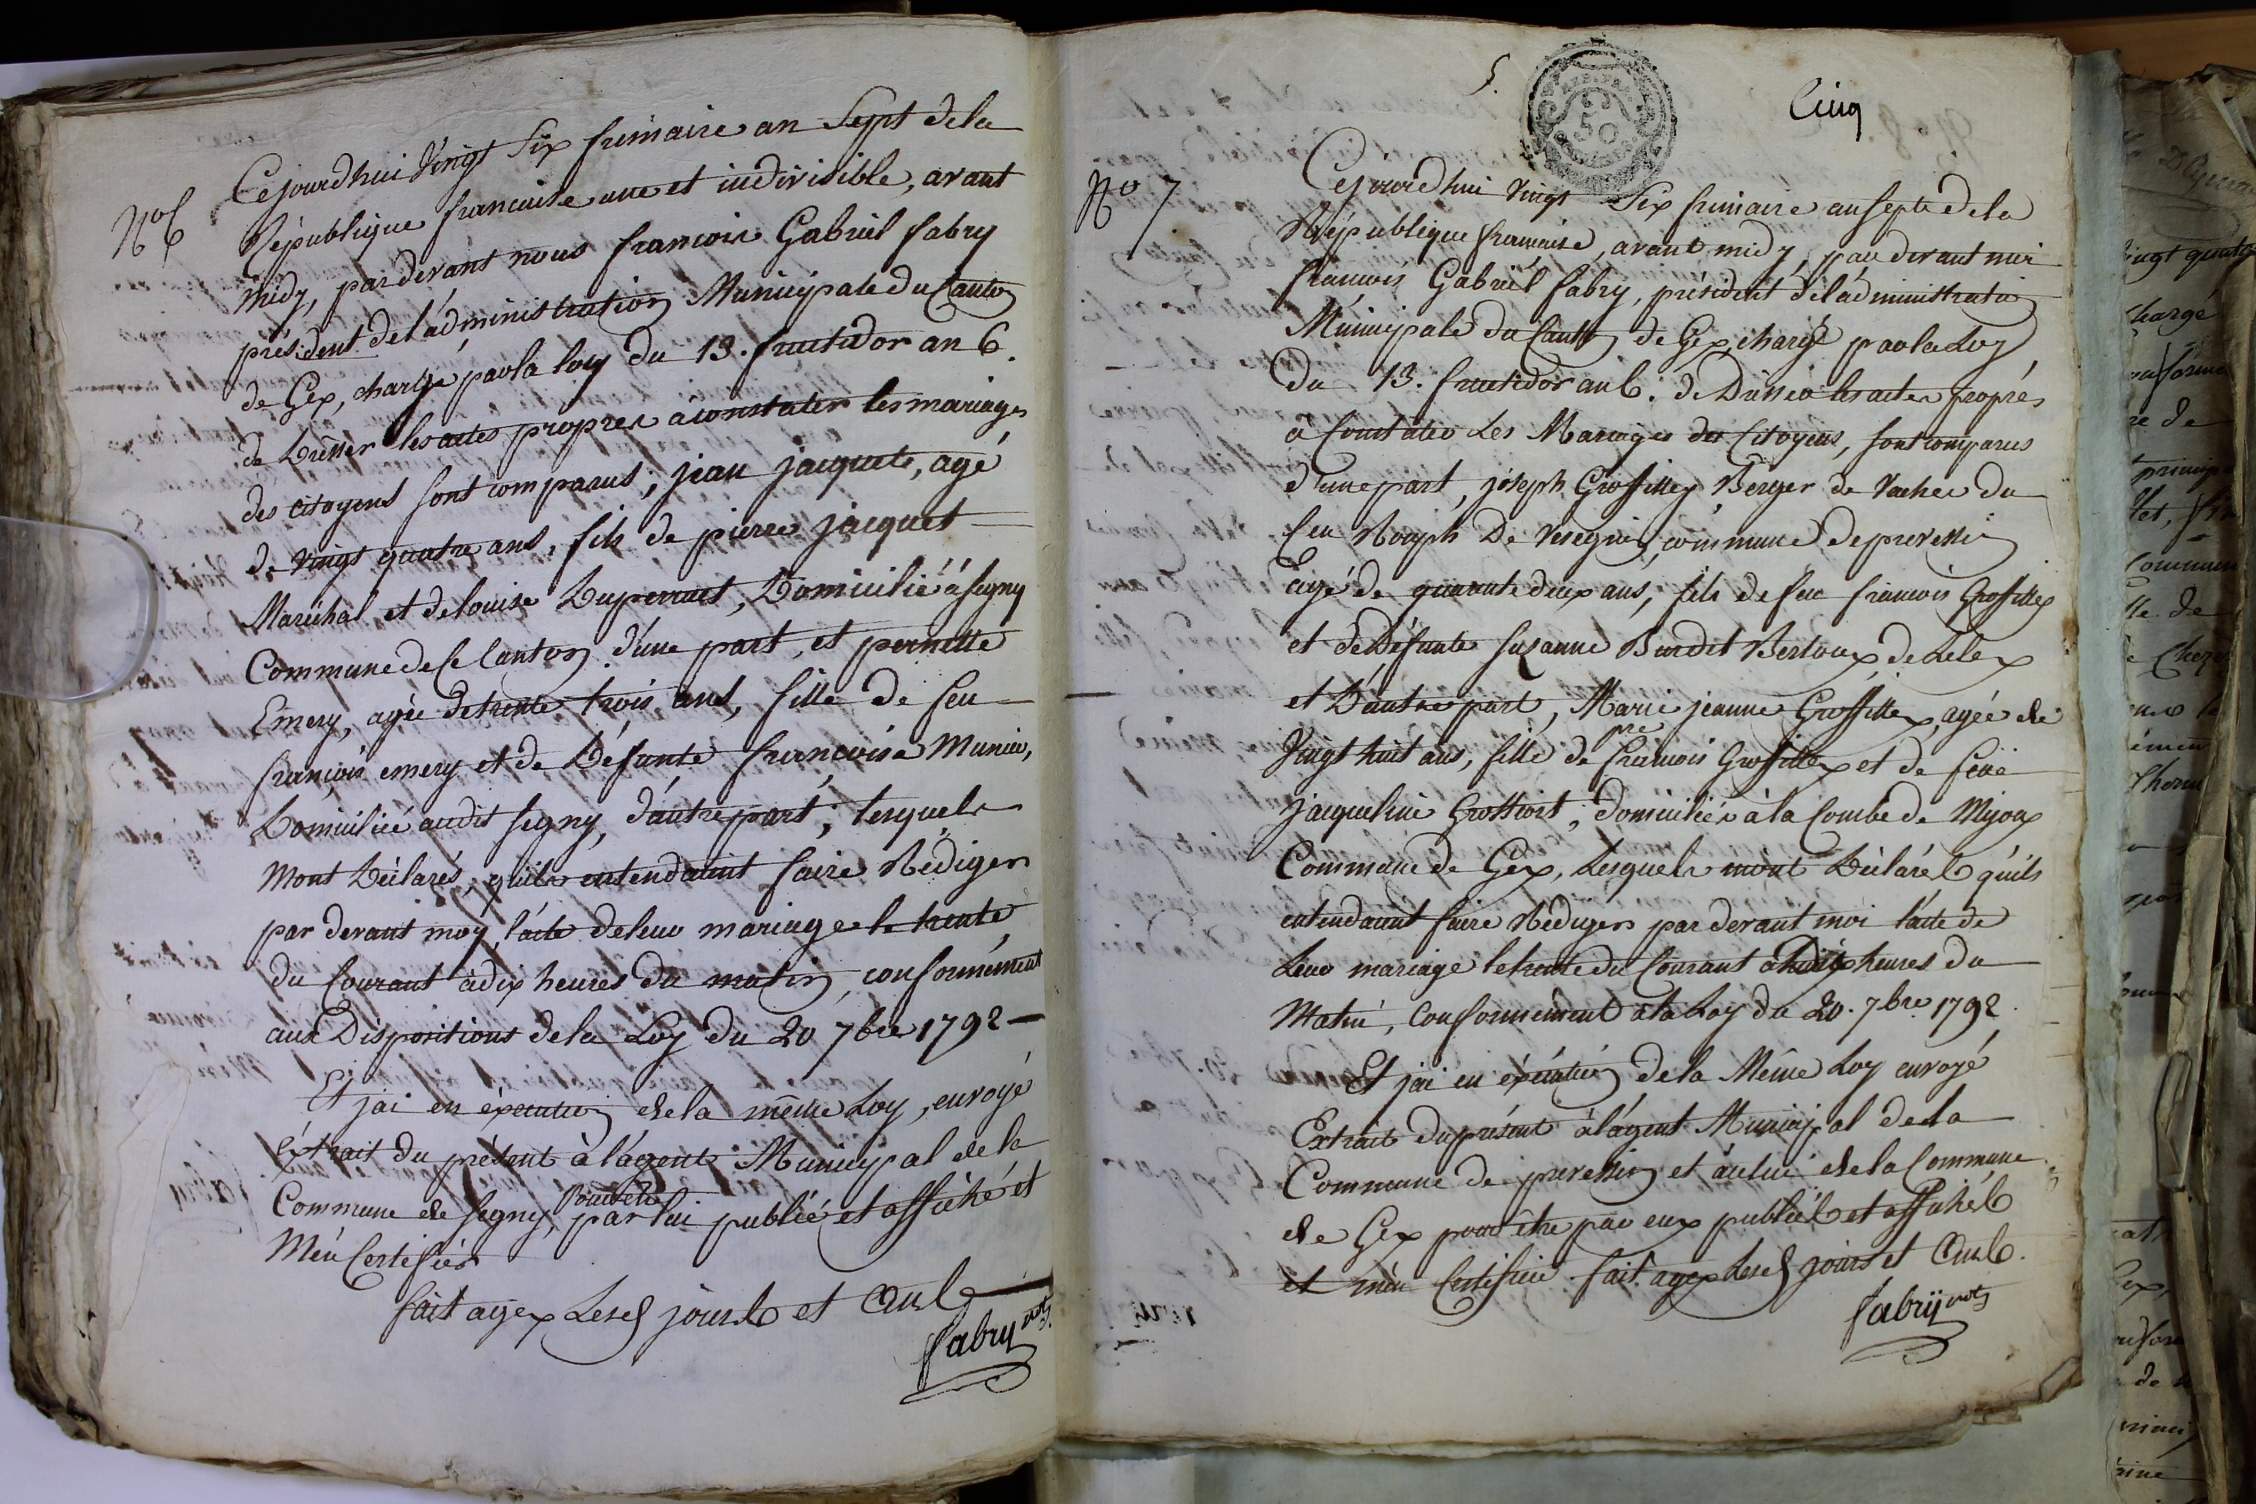 No 6
Cejourdhui Vingt Six frimaire an Sept de la
République francaise une et indivisible, avant
midy, par devant nous francois Gabriel fabry
président del'administration Municipale du Canton
de Gex, chargé par la loy du 13. fructidor an 6.
de Dresser les actes propres à constater les mariages
des citoyens sont comparus, jean jacquet, agé
de vingt quatre ans, fils de pierre jacquet
Maréchal et de louise Dupernet, Domicilié à segny
Commune de ce Canton d'une part, et pernette
Emery, agée de trente trois ans, fille de feu
françois emery et de Défunte francoise Munier,
Domiciliée audit segny, d'autre part; lesquels
mont Déclarés, quils entendoient faire Rédiger
par devant moy, l'acte de leur mariage le trente
du Courant à dix heures du matin, conformément
aux Dispositions de la Loy du 20 7bre 1792 —
Et jai en éxécution de la même Loy, envoyé
éxtrait du présent à l'agent Municipal de la
Commune de Segny, pour etre par lui publié et affiché et
Men Certifier
fait a gex Lesd jours et an
fabry not
5.
50
Cinq
No 7
Cejourdhui Vingt Six frimaire an sept de la
République francaise, avant midy, par devant moi
francois Gabriel fabry, président de l'administration
Municipale du Canton de Gex, chargé par la Loy
du 13. fructidor an 6. de Dresser les actes propres
à Constater Les Mariages des Citoyens, sont comparus
d'une part, joseph Grossillex Berger de Vaches du
commune de prevessin
Agé de quarante deux ans, fils de feu francois Grossillex
et de Défunte susanne Burdet de Lelex
et Dautre part, Marie jeanne Grossillex, agée de
Vingt huit ans, fille de pre francois Grossillex et de feüe
jacqueline Grossiort, domiciliée à la Combe de Mijoux
Commune de Gex, Lesquels mont Déclaré quils
entendoient faire Rédiger par devant moi l'acte de
Leur mariage le trente du Courant à dix heures du
Matin, Conformément à la Loy du 20. 7bre 1792
Et jai en éxécution de la Même Loy envoyé
Extrait du présent à l'agent Municipal de la
Commune de prevessin et à celui de la Commune
de Gex pour être par eux publié et affiché
et men Certifier fait a gex Lesd jours et an
fabry not